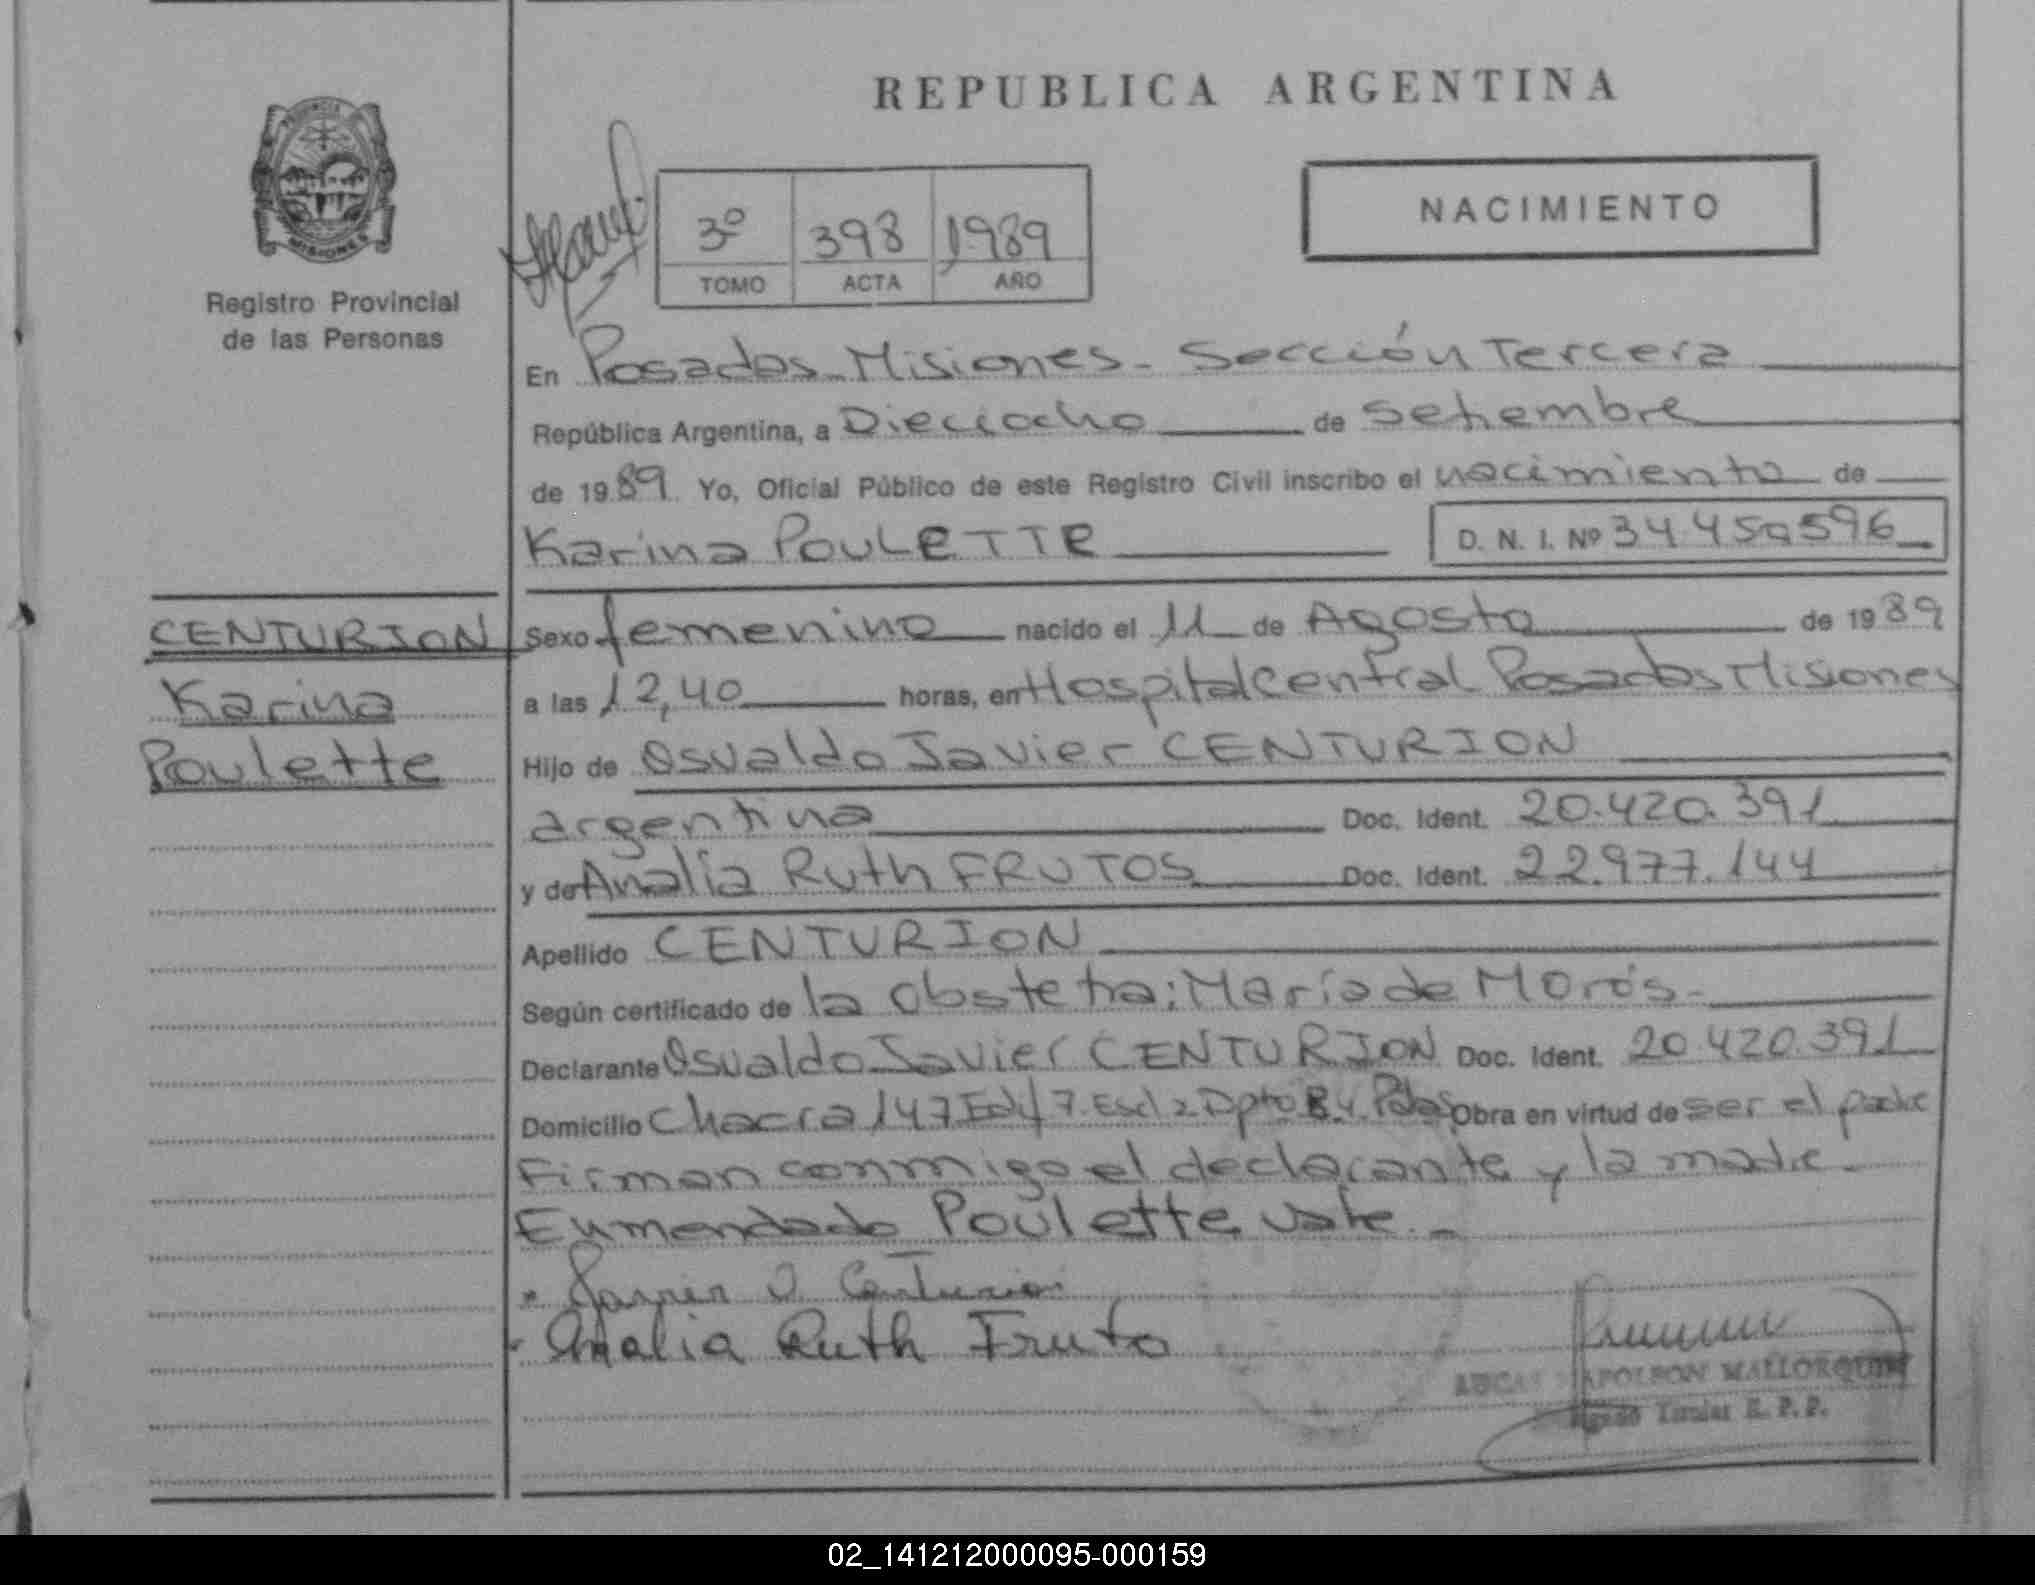 REPUBLICA ARGENTINA
NACIMIENTO
3º 398 1989
TOMO ACTA AÑO
MISIONES
Registro Provincial
de las Personas
En Posadas - Misiones - Sección Tercera
República Argentina, a Dieciocho de Setiembre
de 1989 Yo, Oficial Público de este Registro Civil inscribo el nacimiento de
Karina POULETTE D. N. I. Nº 34.450596
CENTURION
Karina
Poulette
Sexo femenino nacido el 11 de Agosto de 1989
a las 12,40 horas, en Hospital Central Posadas Misiones
Hijo de Osvaldo Javier CENTURION
argentina Doc. Ident. 20.420.391
y de Analía Ruth FRUTOS Doc. Ident. 22.977.144
Apellido CENTURION
Según certificado de la obstetra: María de Morós.
Declarante Osvaldo Javier CENTURION Doc. Ident. 20.420.391
Domicilio Chacra 147 Edif 7. Escl 2 Dpto B4 Pdas Obra en virtud de ser el padre
Firman conmigo el declarante y la madre.
Enmendado Poulette vale.
Javier O. Centurion
Analia Ruth Fruto
NAPOLEON MALLORQUIN
Titular R. P. P.
02_141212000095-000159